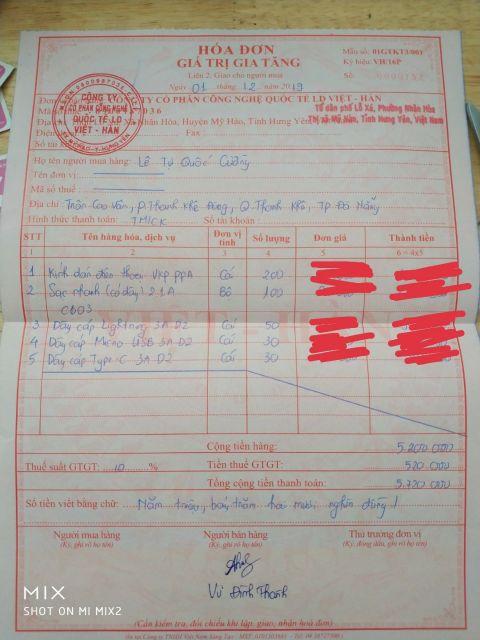 HÓA ĐƠN
GIÁ TRỊ GIA TĂNG
Liên 2: Giao cho người mua
Ngày 01 tháng 12 năm 2019
Mẫu số: 01GTKT3/001
Ký hiệu: VH/16P
Số:
CÔNG TY CỔ PHẦN CÔNG NGHỆ QUỐC TẾ LD VIỆT - HÀN
CÔNG TY
CỔ PHẦN CÔNG NGHỆ
QUỐC TẾ LD
VIỆT - HÀN
Tổ dân phố Lỗ Xá, Phường Nhân Hòa
Thị xã Mỹ Hào, Tỉnh Hưng Yên, Việt Nam
Nhân Hòa, Huyện Mỹ Hào, Tỉnh Hưng Yên
Điện Fax:
Số tài
Họ tên người mua hàng: Lê Tự Quốc Cường
Tên đơn vị:
Mã số thuế:
Địa chỉ: Trần Cao Vân, P. Thanh Khê Đông, Q. Thanh Khê, TP Đà Nẵng
Hình thức thanh toán: TM/CK Số tài khoản:
STT Tên hàng hóa, dịch vụ Đơn vị tính Số lượng Đơn giá Thành tiền
1 2 3 4 5 6 = 4x5
1 Kính dán điện thoại VKP PPA Cái 200
2 Sạc nhanh (có dây) 2.1A Bộ 100
C803
3 Dây cáp Lightning 3A D2 Cái 50
4 Dây cáp Micro USB 3A D2 Cái 30
5 Dây cáp Type-C 3A D2 Cái 30
Cộng tiền hàng: 5.200.000
Thuế suất GTGT: 10 % Tiền thuế GTGT: 520.000
Tổng cộng tiền thanh toán: 5.720.000
Số tiền viết bằng chữ: Năm triệu, bảy trăm hai mươi nghìn đồng!
Người mua hàng Người bán hàng Thủ trưởng đơn vị
(Ký, ghi rõ họ tên) (Ký, ghi rõ họ tên) (Ký, đóng dấu, ghi rõ họ tên)
Vũ Đình Thanh
(Cần kiểm tra, đối chiếu khi lập, giao, nhận hoá đơn)
MIX
SHOT ON MI MIX2